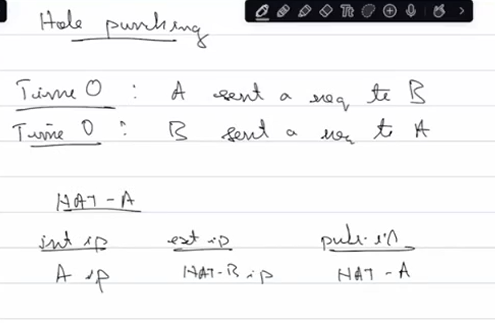 Hole punching
Time 0 : A sent a req to B
Time 0 : B sent a req to A
NAT-A
int ip ext ip pub ip
A ip NAT-B ip NAT-A